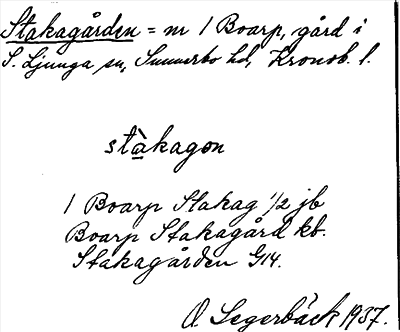 Stakagården = nr 1 Boarp, gård i
S. Ljunga sn, Sunnerbo hd, Kronob. l.
stàkagon
1 Boarp Stakag 1/2 jb
Boarp Stakagård kb.
Stakagården G14.
O. Segerbäck 1937.